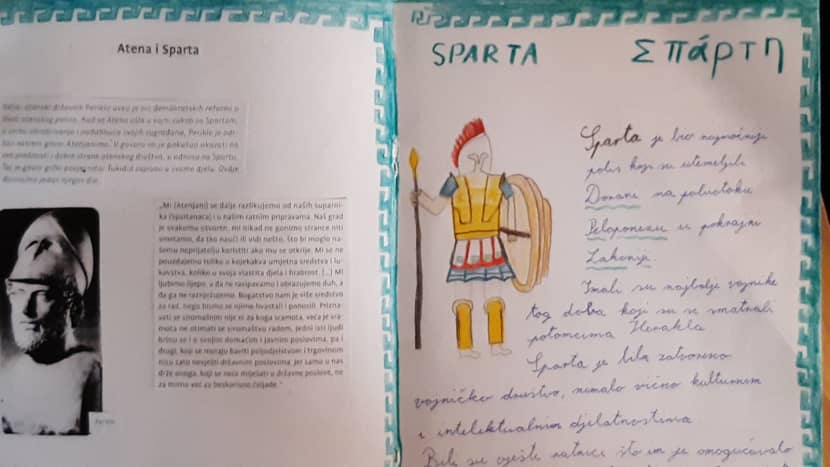 Atena i Sparta
atenski državnik Perikle uveo je niz demokratskih reformi u
život atenskog polisa. Kad je Atena ušla u vojni sukob sa Spartom,
u svrhu ohrabrivanja i nadahnuća svojih sugrađana, Perikle je održao
natrem govor Atenjanima. U govoru im je pokušao ukazati na
sve prednosti i dobre strane atenskog društva, u odnosu na Spartu.
Taj je govor grčki povjesničar Tukidid zapisao u svome djelu. Ovdje
donosimo jedan njegov dio.
„Mi (Atenjani) se dalje razlikujemo od naših suparni-
ka (Spartanaca) i u našim ratnim pripravama. Naš grad
je svakomu otvoren; mi nikad ne gonimo strance niti
smetamo, da tko nauči ili vidi nešto, što bi moglo na-
šemu neprijatelju koristiti ako mu se otkrije. Mi se ne
pouzdajemo toliko u kojekakva umjetna sredstva i lu-
kavstva, koliko u svoja vlastita djela i hrabrost. [...] Mi
ljubimo lijepo, a da ne rasipavamo i obrazujemo duh, a
da ga ne razmježujemo. Bogatstvo nam je više sredstvo
za rad, nego bismo se njime hvastali i ponosili. Prizna-
vati se siromašnim nije ni za koga sramota, veća je sra-
mota ne otimati se siromaštvu radom. Jedni isti ljudi
brinu se i o svojim domaćim i javnim poslovima, pa i
drugi, koji se moraju baviti poljodjelstvom i trgovinom
nisu zato nevješti državnim poslovima. Jer samo u nas
drže onoga, koji se neće miješati u državne poslove, ne
za mirno već za beskorisno čeljade."
Perikle
SPARTA ΣΠάρτη
Sparta je bio najmoćniji
polis koji su utemeljili
Dorani na poluotoku
Peloponezu u pokrajini
Lakoniji.
Imali su najbolje vojnike
tog doba koji su se smatrali
potomcima Herakla.
Sparta je bila zatvoreno
vojničko društvo, nimalo vično kulturnim
i intelektualnim djelatnostima.
Bili su vješti ratnici što im je omogućavalo